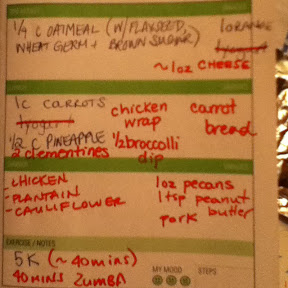 1/4 C OATMEAL (W/ FLAXSEED,
WHEAT GERM + BROWN SUGAR)
1 ORANGE
1 yogurt
~ 1oz CHEESE
1C CARROTS
1 yogurt
1/2 C PINEAPPLE
2 clementines
chicken
wrap
1/2 broccolli
dip
carrot
bread
- CHICKEN
- PLANTAIN
- CAULIFLOWER
1oz pecans
1 tsp peanut
butter
pork
EXERCISE / NOTES
5K (~ 40 mins)
40 MINS ZUMBA
MY MOOD
STEPS